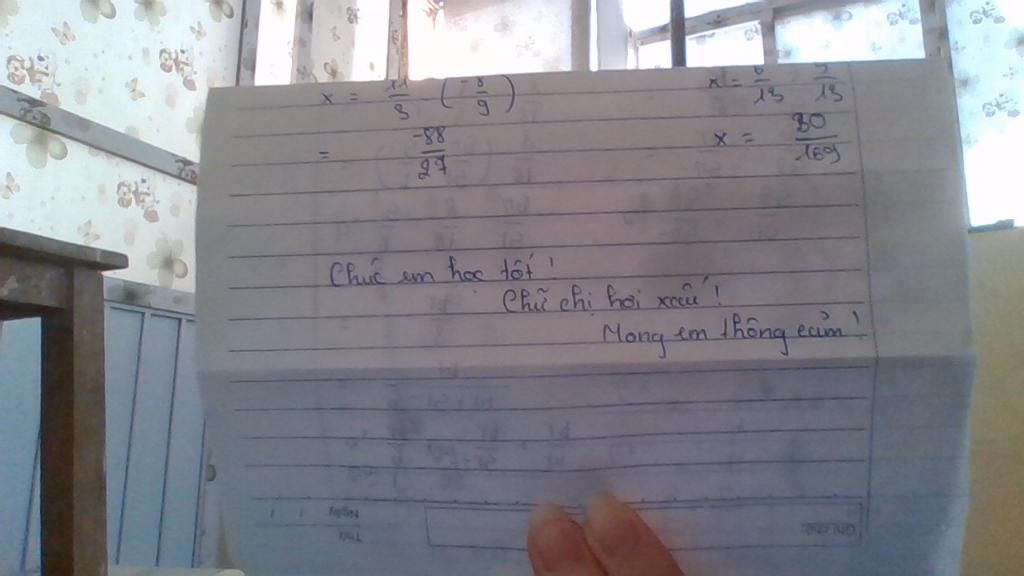 x = 11/3 · (-8/9)
= -88/27
x =
x = 80/169
Chúc em học tốt!
Chữ chị hơi xấu!
Mong em thông cảm!
Thứ
Ngày / /